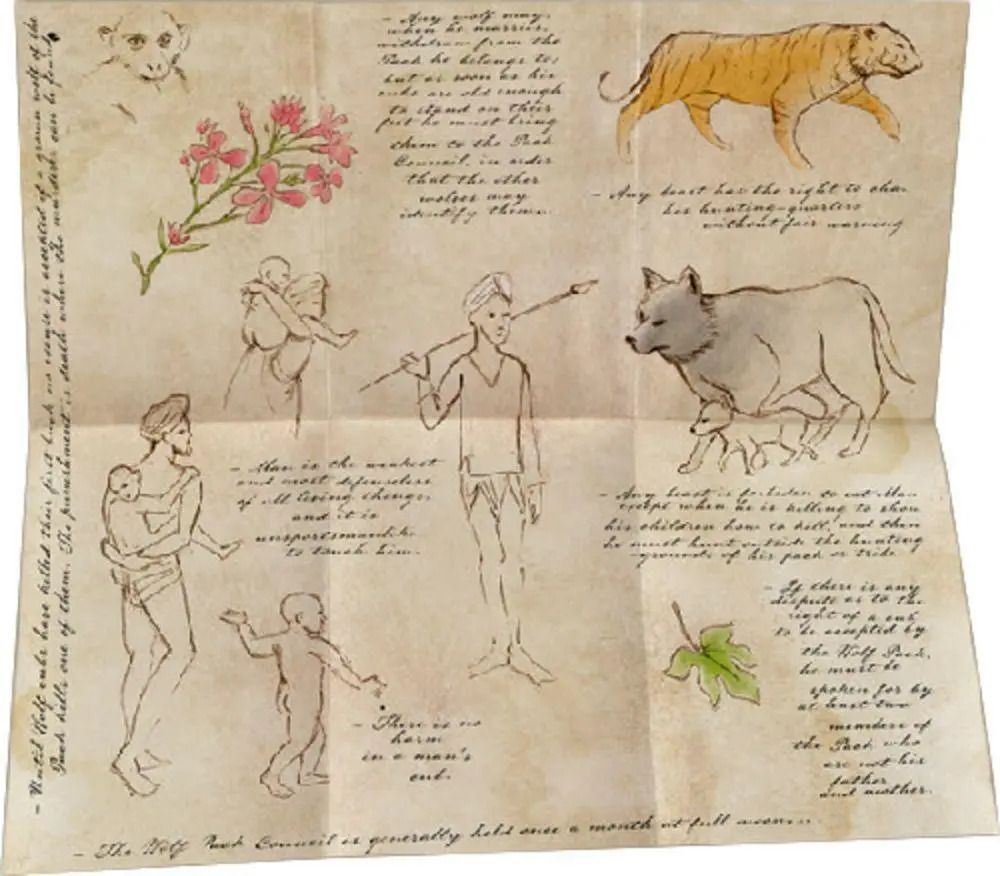 - Any wolf may,
when he marries,
withdraw from the
Pack he belongs to;
but as soon as his
cubs are old enough
to stand on their
feet he must bring
them to the Pack
Council, in order
that the other
wolves may
identify them.
- Any beast has the right to
his hunting-quarters
without fair warning
- Until Wolf cubs have killed their first buck no excuse is accepted if a grown wolf of the
Pack kills one of them. The punishment is death where the murderer can be found.
- Man is the weakest
and most defenseless
of all living things,
and it is
unsportsmanlike
to touch him.
- Any beast is forbidden to eat Man
except when he is killing to show
his children how to kill, and then
he must hunt outside the hunting
-grounds of his pack or tribe.
- If there is any
dispute as to the
right of a cub
to be accepted by
the Wolf Pack,
he must be
spoken for by
at least two
members of
the Pack who
are not his
father
and mother.
- There is no
harm
in a man's
cub.
- The Wolf Pack Council is generally held once a month at full moon.